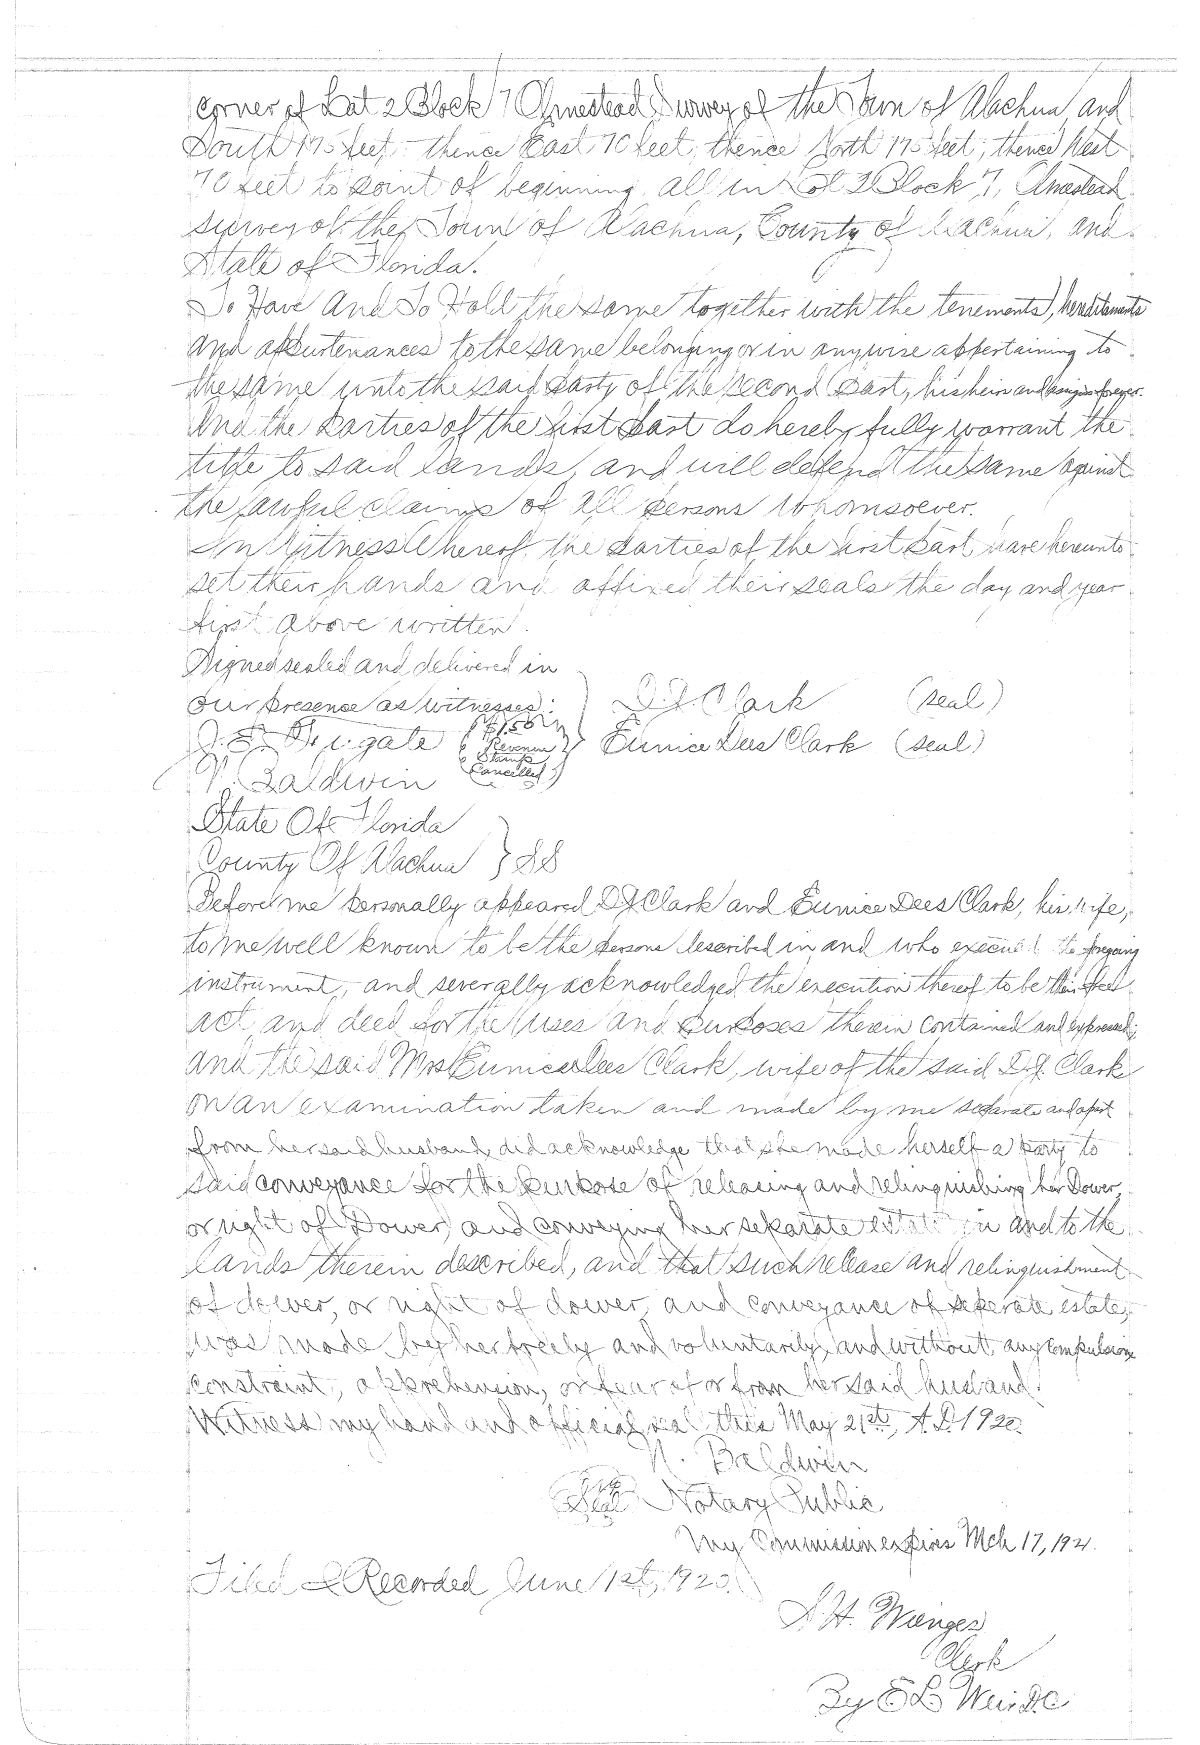 corner of Lot 2 Block 7 Olmestead Survey of the Town of Alachua, and
South 175 feet, thence East 70 feet, thence North 175 feet, thence West
70 feet to point of beginning, all in Lot 2 Block 7, Olmestead
survey of the Town of Alachua, County of Alachua, and
State of Florida.
To Have And To Hold the same together with the tenements, hereditaments
and appurtenances to the same belonging or in anywise appertaining to
the same unto the said party of the second part, his heirs and assigns forever.
And the parties of the first part do hereby fully warrant the
title to said lands, and will defend the same against
the lawful claims of all persons whomsoever.
In Witness Whereof, the parties of the first part have hereunto
set their hands and affixed their seals the day and year
first above written.
Signed sealed and delivered in
our presence as witnesses: D.J. Clark (seal)
Fugate Eunice Dees Clark (seal)
$1.50
Revenue
Stamps
Cancelled
N. Baldwin
State Of Florida
County Of Alachua } SS
Before me personally appeared D J Clark and Eunice Dees Clark, his wife,
to me well known to be the persons described in and who executed the foregoing
instrument, and severally acknowledged the execution thereof to be their free
act and deed for the uses and purposes therein contained and expressed;
and the said Mrs Eunice Dees Clark, wife of the said D.J. Clark
on an examination taken and made by me separate and apart
from her said husband, did acknowledge that she made herself a party to
said conveyance for the purpose of releasing and relinquishing her Dower,
or right of Dower, and conveying her separate estate in and to the
lands therein described, and that such release and relinquishment
of dower, or right of dower, and conveyance of seperate estate,
was made by her freely and voluntarily, and without any compulsion
constraint, apprehension, or fear of or from her said husband.
Witness my hand and official seal this May 21st, A.D. 1920.
N. Baldwin
Seal Notary Public
My Commission expires Mch 17, 1921.
Filed & Recorded June 1st, 1920.
S.H. Wienges
Clerk
By E L Weir D.C.